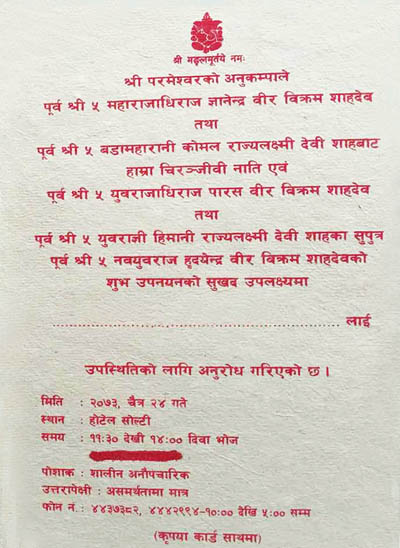 श्री मङ्गलमूर्तये नमः
श्री परमेश्वरको अनुकम्पाले
पूर्व श्री ५ महाराजाधिराज ज्ञानेन्द्र वीर विक्रम शाहदेव
तथा
पूर्व श्री ५ बडामहारानी कोमल राज्यलक्ष्मी देवी शाहबाट
हाम्रा चिरञ्जीवी नाति एवं
पूर्व श्री ५ युवराजाधिराज पारस वीर विक्रम शाहदेव
तथा
पूर्व श्री ५ युवराज्ञी हिमानी राज्यलक्ष्मी देवी शाहका सुपुत्र
पूर्व श्री ५ नवयुवराज हृदयेन्द्र वीर विक्रम शाहदेवको
शुभ उपनयनको सुखद उपलक्ष्यमा
.......................................................... लाई
उपस्थितिको लागि अनुरोध गरिएको छ ।
मिति : २०७३, चैत्र २४ गते
स्थान : होटेल सोल्टी
समय : ११:३० देखी १४:०० दिवा भोज
पोशाक : शालीन अनौपचारिक
उत्तरापेक्षी : असमर्थतामा मात्र
फोन नं. : ४४३७३८२, ४४४२९९४-१०:०० देखि ५:०० सम्म
(कृपया कार्ड साथमा)